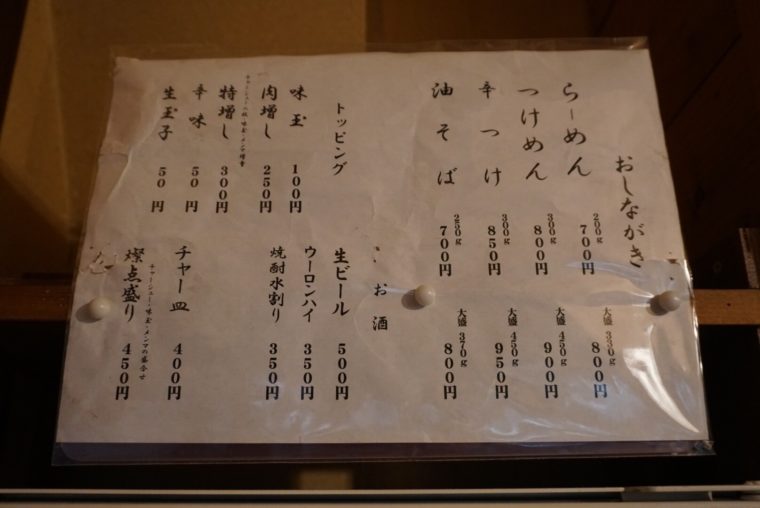 おしながき
らーめん 200g 700円 大盛 330g 800円
つけめん 300g 800円 大盛 450g 900円
辛つけ 300g 850円 大盛 450g 950円
油そば 250g 700円 大盛 370g 800円
トッピング
味玉 100円
肉増し 250円
特増し 300円
チャーシュー二枚・味玉・メンマ増量
辛味 50円
生玉子 50円
お酒
生ビール 500円
ウーロンハイ 350円
焼酎水割り 350円
チャー皿 400円
燦点盛り 450円
チャーシュー・味玉・メンマの盛合せ